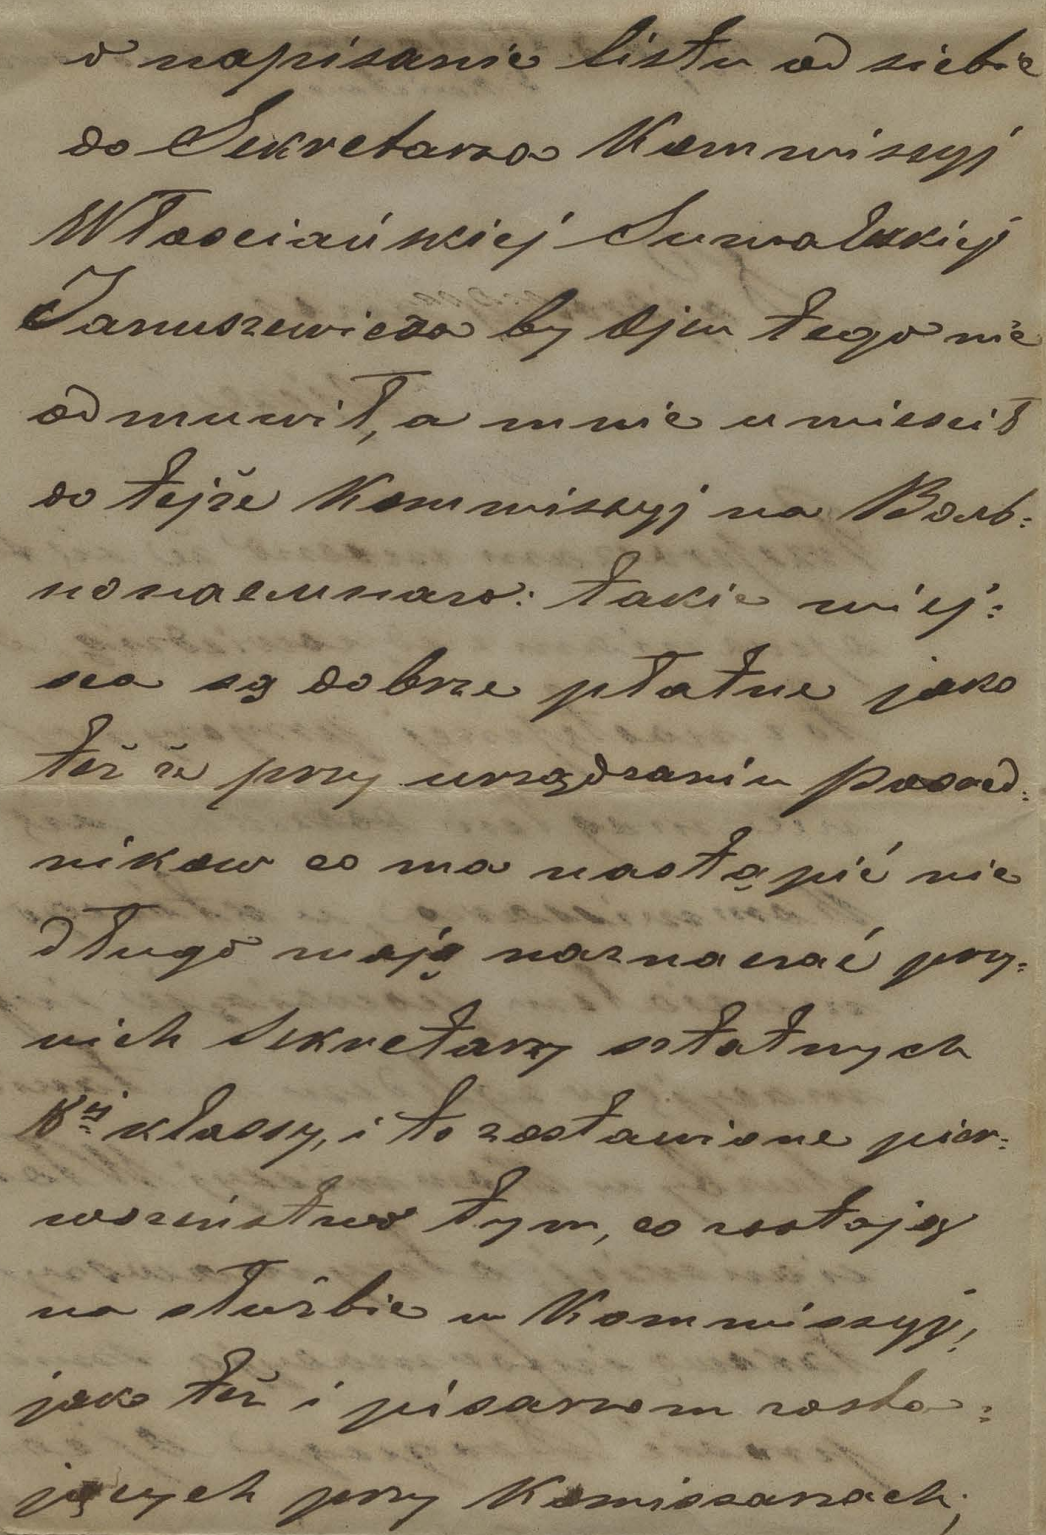 o napisanie listu od siebie
do Sekretarza Kommissyj
Włosciańskiej Suwalskiej
Januszewicza by Ojcu tego nie
odmuwił, a mnie umiescił
do tejże Kommissyj na Воль:
нонаемнаго: takie miej:
sca są dobrze płatne jako
też że przy urządzaniu Posred:
nikow co ma nastąpić nie
długo mają naznaczać przy:
nich Sekretarzy sztatnych
8ej klassy, i to zostawione pier:
wszeństwo tym, co zostają
na służbie w Kommissyj,
jako też i pisarzom zosta:
jących przy Komissarzach;